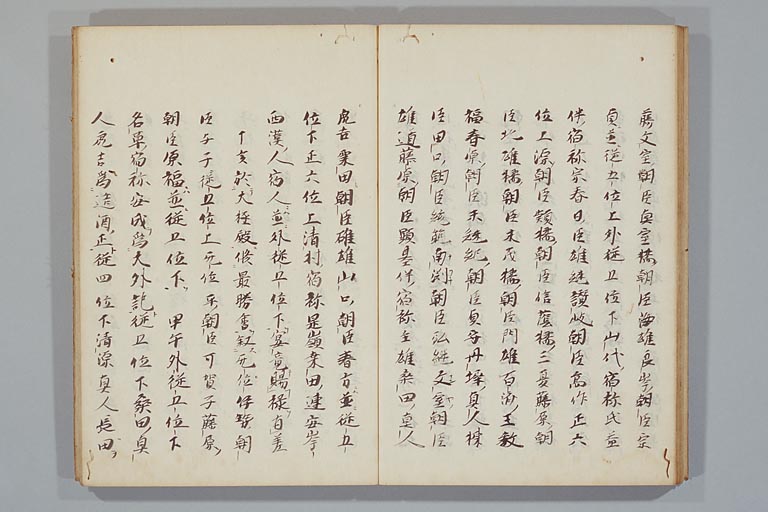 藤文室朝臣真室橘朝臣海雄良岑朝臣宗
貞並従五位上外従五位下山代宿祢氏益
伴宿祢宗春日臣雄継讃岐朝臣高作正六
位上源朝臣頴橘朝臣信蔭橘三夏藤原朝
臣北雄橘朝臣末茂橘朝臣門雄百済王教
福春原朝臣末継紀朝臣貞守丹墀真人棟
臣田口朝臣統範南渕朝臣弘継文室朝臣
雄道藤原朝臣顕基伴宿祢主雄桑田真人
虎吉粟田朝臣碓雄山口朝臣春方並従五
位下正六位上清村宿祢是嶺桑田連安岑
西漢人宿人並外従五位下宴竟賜禄有差
丁亥於大極殿修最勝會叙无位伴 朝
臣 子従五位上无位 朝臣可賀子藤原
朝臣原福並従五位下 甲午外従五位下
名草宿祢安成為大外記従五位下桑田真
人虎吉為造酒正従四位下清原真人長田